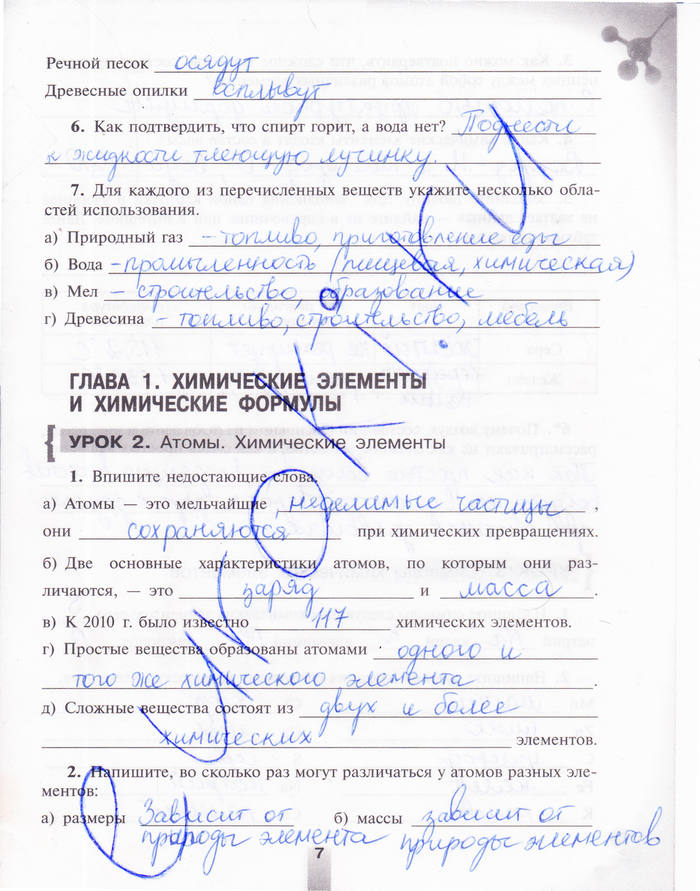 Речной песок осядут
Древесные опилки всплывут
6. Как подтвердить, что спирт горит, а вода нет? Поднести
к жидкости тлеющую лучинку.
7. Для каждого из перечисленных веществ укажите несколько обла-
стей использования.
а) Природный газ – топливо, приготовление еды
б) Вода – промыленность (пищевая, химическая)
в) Мел – строительство, образование
г) Древесина – топливо, строительство, мебель
ГЛАВА 1. ХИМИЧЕСКИЕ ЭЛЕМЕНТЫ
И ХИМИЧЕСКИЕ ФОРМУЛЫ
УРОК 2. Атомы. Химические элементы
1. Впишите недостающие слова.
а) Атомы — это мельчайшие неделимые частицы ,
они сохраняются при химических превращениях.
б) Две основные характеристики атомов, по которым они раз-
личаются, — это заряд и масса .
в) К 2010 г. было известно 117 химических элементов.
г) Простые вещества образованы атомами одного и
того же химического элемента .
д) Сложные вещества состоят из двух и более
химических элементов.
2. Напишите, во сколько раз могут различаться у атомов разных эле-
ментов:
а) размеры Зависит от б) массы зависит от
природы элемента природы элементов
7